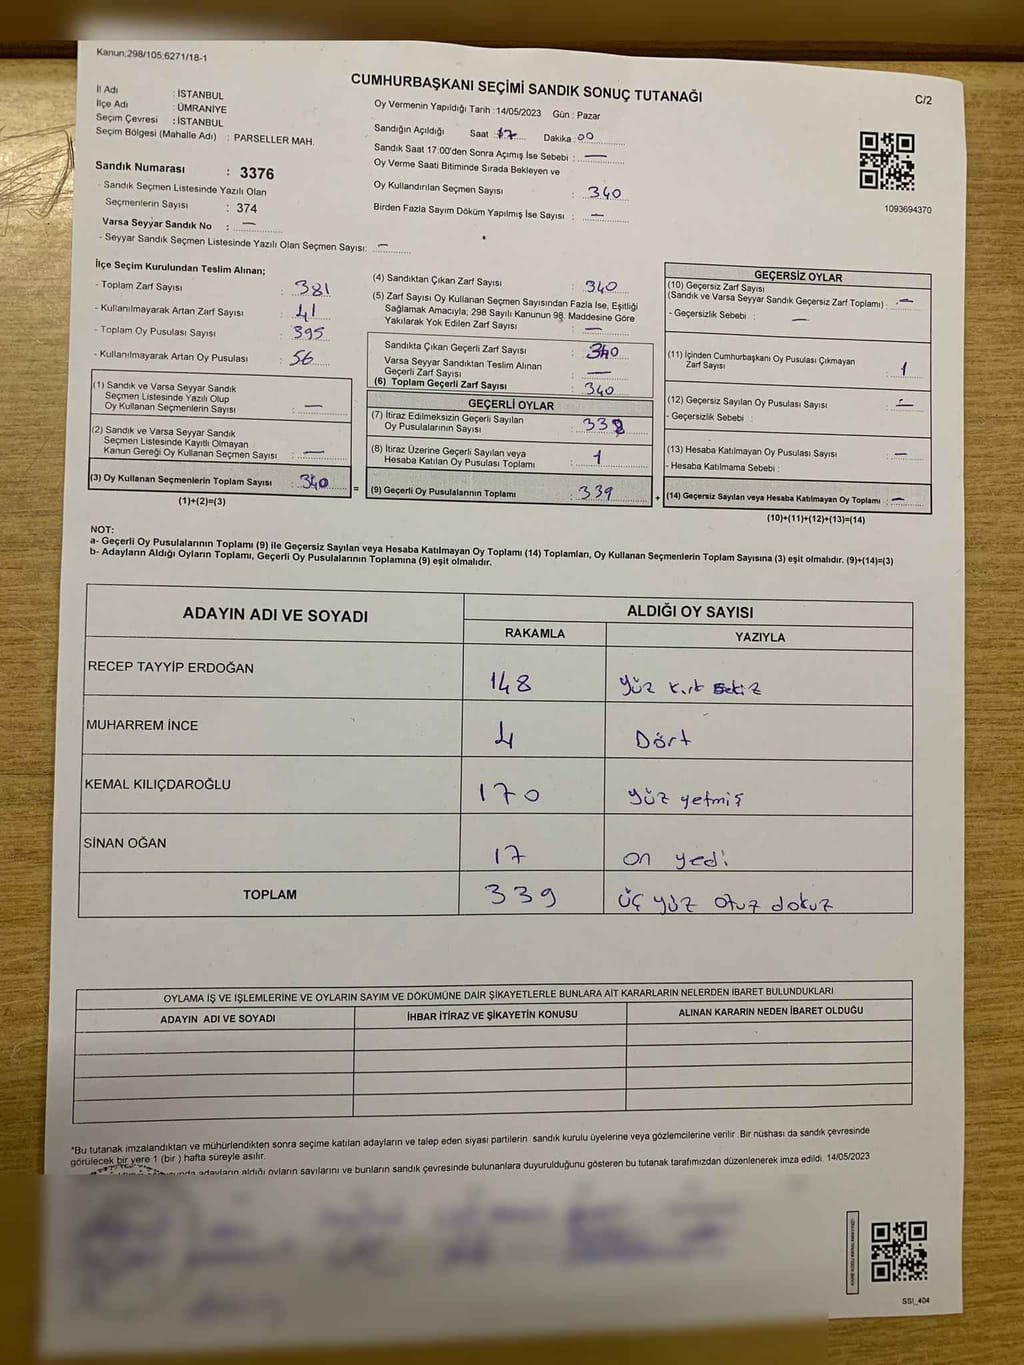 Kanun:298/105:6271/18-1
CUMHURBAŞKANI SEÇİMİ SANDIK SONUÇ TUTANAĞI
C/2
İl Adı : İSTANBUL
İlçe Adı : ÜMRANİYE
Seçim Çevresi : İSTANBUL
Seçim Bölgesi (Mahalle Adı) : PARSELLER MAH.
Sandık Numarası : 3376
- Sandık Seçmen Listesinde Yazılı Olan
Seçmenlerin Sayısı : 374
Varsa Seyyar Sandık No : —
- Seyyar Sandık Seçmen Listesinde Yazılı Olan Seçmen Sayısı: —
Oy Vermenin Yapıldığı Tarih : 14/05/2023 Gün : Pazar
Sandığın Açıldığı Saat : 17 Dakika : 00
Sandık Saat 17:00'den Sonra Açımış İse Sebebi : —
Oy Verme Saati Bitiminde Sırada Bekleyen ve
Oy Kullandırılan Seçmen Sayısı : 340
Birden Fazla Sayım Döküm Yapılmış İse Sayısı : —
1093694370
İlçe Seçim Kurulundan Teslim Alınan;
- Toplam Zarf Sayısı : 381
- Kullanılmayarak Artan Zarf Sayısı : 41
- Toplam Oy Pusulası Sayısı : 395
- Kullanılmayarak Artan Oy Pusulası : 56
(1) Sandık ve Varsa Seyyar Sandık
Seçmen Listesinde Yazılı Olup
Oy Kullanan Seçmenlerin Sayısı : —
(2) Sandık ve Varsa Seyyar Sandık
Seçmen Listesinde Kayıtlı Olmayan
Kanun Gereği Oy Kullanan Seçmen Sayısı : —
(3) Oy Kullanan Seçmenlerin Toplam Sayısı : 340
(1)+(2)=(3)
=
(4) Sandıktan Çıkan Zarf Sayısı : 340
(5) Zarf Sayısı Oy Kullanan Seçmen Sayısından Fazla İse, Eşitliği
Sağlamak Amacıyla; 298 Sayılı Kanunun 98. Maddesine Göre
Yakılarak Yok Edilen Zarf Sayısı : —
Sandıkta Çıkan Geçerli Zarf Sayısı : 340
Varsa Seyyar Sandıktan Teslim Alınan
Geçerli Zarf Sayısı : —
(6) Toplam Geçerli Zarf Sayısı : 340
GEÇERLİ OYLAR
(7) İtiraz Edilmeksizin Geçerli Sayılan
Oy Pusulalarının Sayısı : 338
(8) İtiraz Üzerine Geçerli Sayılan veya
Hesaba Katılan Oy Pusulası Toplamı : 1
(9) Geçerli Oy Pusulalarının Toplamı : 339
+
GEÇERSİZ OYLAR
(10) Geçersiz Zarf Sayısı
(Sandık ve Varsa Seyyar Sandık Geçersiz Zarf Toplamı) : —
- Geçersizlik Sebebi : —
(11) İçinden Cumhurbaşkanı Oy Pusulası Çıkmayan
Zarf Sayısı : 1
(12) Geçersiz Sayılan Oy Pusulası Sayısı : —
- Geçersizlik Sebebi :
(13) Hesaba Katılmayan Oy Pusulası Sayısı : —
- Hesaba Katılmama Sebebi :
(14) Geçersiz Sayılan veya Hesaba Katılmayan Oy Toplamı : —
(10)+(11)+(12)+(13)=(14)
NOT:
a- Geçerli Oy Pusulalarının Toplamı (9) ile Geçersiz Sayılan veya Hesaba Katılmayan Oy Toplamı (14) Toplamları, Oy Kullanan Seçmenlerin Toplam Sayısına (3) eşit olmalıdır. (9)+(14)=(3)
b- Adayların Aldığı Oyların Toplamı, Geçerli Oy Pusulalarının Toplamına (9) eşit olmalıdır.
ADAYIN ADI VE SOYADI
ALDIĞI OY SAYISI
RAKAMLA YAZIYLA
RECEP TAYYİP ERDOĞAN 148 yüz kırk sekiz
MUHARREM İNCE 4 Dört
KEMAL KILIÇDAROĞLU 170 yüz yetmiş
SİNAN OĞAN 17 on yedi
TOPLAM 339 üç yüz otuz dokuz
OYLAMA İŞ VE İŞLEMLERİNE VE OYLARIN SAYIM VE DÖKÜMÜNE DAİR ŞİKAYETLERLE BUNLARA AİT KARARLARIN NELERDEN İBARET BULUNDUKLARI
ADAYIN ADI VE SOYADI İHBAR İTİRAZ VE ŞİKAYETİN KONUSU ALINAN KARARIN NEDEN İBARET OLDUĞU
*Bu tutanak imzalandıktan ve mühürlendikten sonra seçime katılan adayların ve talep eden siyasi partilerin sandık kurulu üyelerine veya gözlemcilerine verilir .Bir nüshası da sandık çevresinde
görülecek bir yere 1 (bir ) hafta süreyle asılır.
adayların aldığı oyların sayılarını ve bunların sandık çevresinde bulunanlara duyurulduğunu gösteren bu tutanak tarafımızdan düzenlenerek imza edildi. 14/05/2023
SSI_404